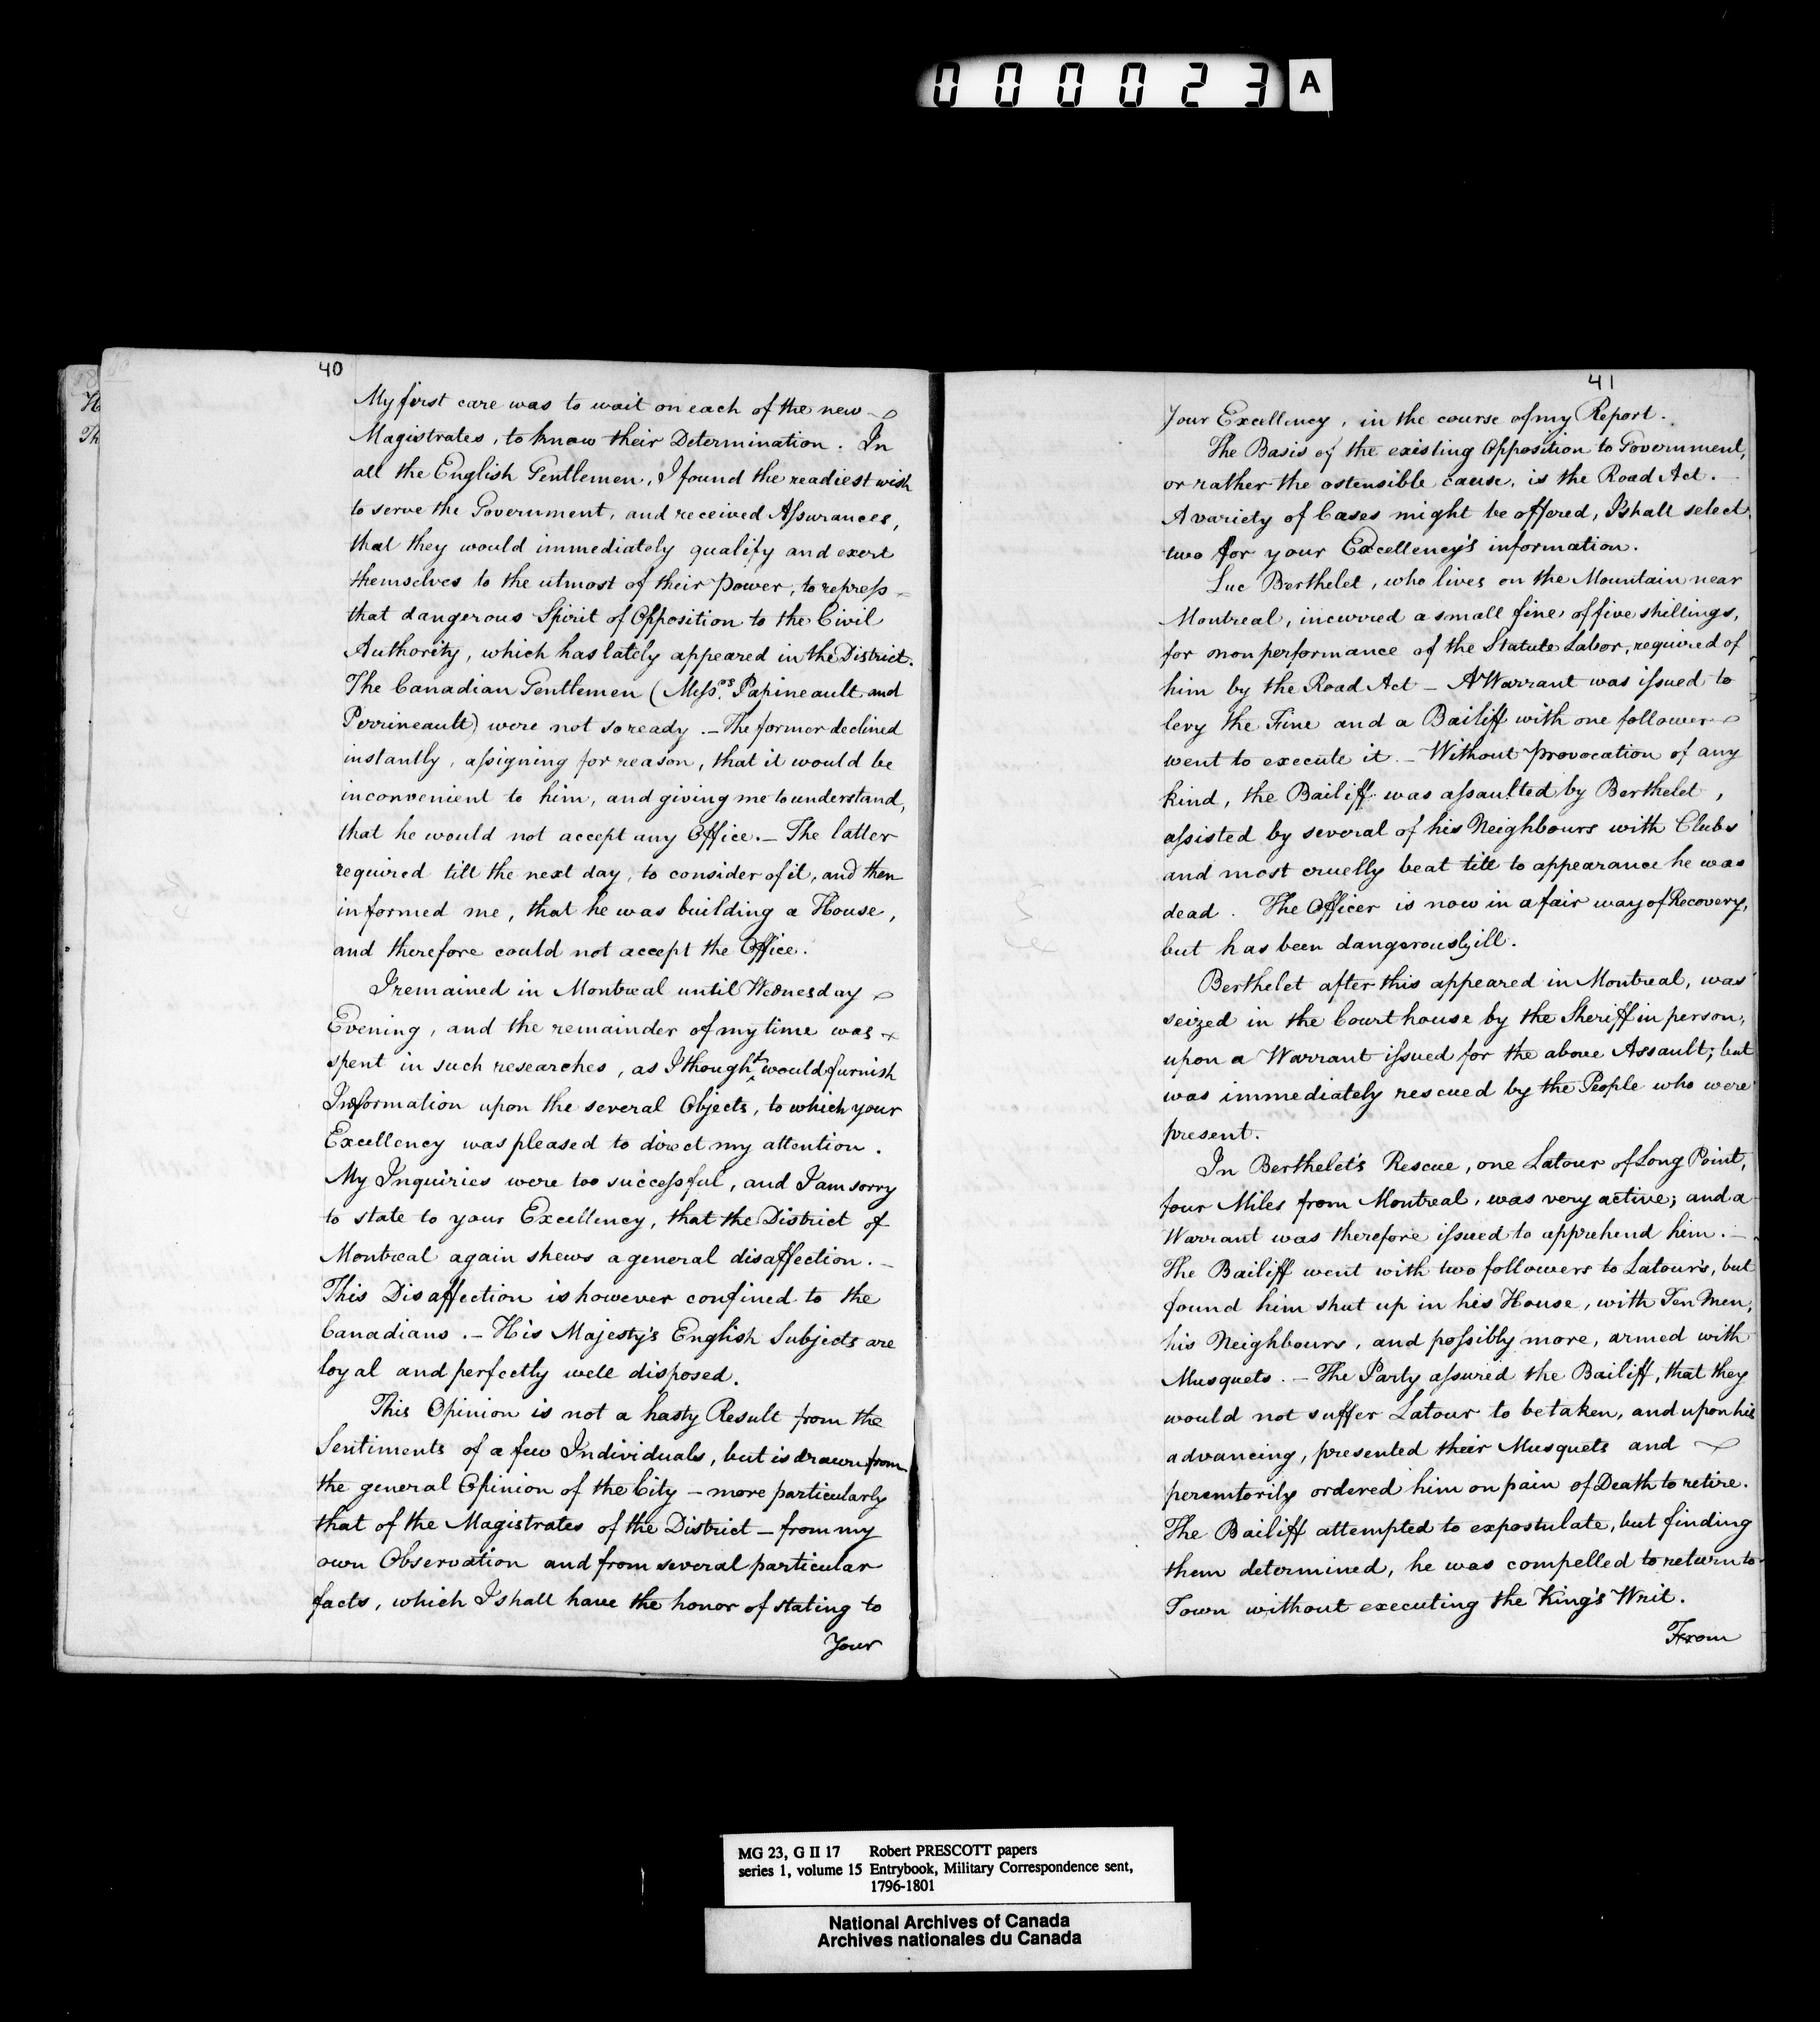 000023 A
40
My first care was to wait on each of the new
Magistrates, to know their Determination. In
all the English Gentlemen, I found the readiest wish
to serve the Government, and received Assurances,
that they would immediately qualify and exert
themselves to the utmost of their power, to repress
that dangerous Spirit of Opposition to the Civil
Authority, which has lately appeared in the District.
The Canadian Gentlemen (Mess.rs Papineault and
Perrineault) were not so ready. — The former declined
instantly, assigning for reason, that it would be
inconvenient to him, and giving me to understand,
that he would not accept any Office. — The latter
required till the next day, to consider of it, and then
informed me, that he was building a House,
and therefore could not accept the Office.
I remained in Montreal until Wednesday
Evening, and the remainder of my time was
spent in such researches, as I thought would furnish
Information upon the several Objects, to which your
Excellency was pleased to direct my attention.
My Inquiries were too successful, and I am sorry
to state to your Excellency, that the District of
Montreal again shews a general disaffection. —
This Disaffection is however confined to the
Canadians. — His Majesty's English Subjects are
loyal and perfectly well disposed.
This Opinion is not a hasty Result from the
Sentiments of a few Individuals, but is drawn from
the general Opinion of the City — more particularly
that of the Magistrates of the District — from my
own Observation and from several particular
facts, which I shall have the honor of stating to
Your
41
Your Excellency, in the course of my Report.
The Basis of the existing Opposition to Government,
or rather the ostensible cause, is the Road Act.
A variety of Cases might be offered, I shall select
two for your Excellency's information.
Luc Berthelet, who lives on the Mountain near
Montreal, incurred a small fine of five shillings,
for non performance of the Statute Labor, required of
him by the Road Act — A Warrant was issued to
levy the Fine and a Bailiff with one follower
went to execute it. — Without provocation of any
kind, the Bailiff was assaulted by Berthelet,
assisted by several of his Neighbours with Clubs
and most cruelly beat till to appearance he was
dead. The Officer is now in a fair way of Recovery,
but has been dangerously ill.
Berthelet after this appeared in Montreal, was
seized in the Court house by the Sheriff in person,
upon a Warrant issued for the above Assault; but
was immediately rescued by the People who were
present.
In Berthelet's Rescue, one Latour of Long Point,
four Miles from Montreal, was very active; and a
Warrant was therefore issued to apprehend him. —
The Bailiff went with two followers to Latour's, but
found him shut up in his House, with Ten Men,
his Neighbours, and possibly more, armed with
Musquets. — The Party assured the Bailiff, that they
would not suffer Latour to be taken, and upon his
advancing, presented their Musquets and
peremtorily ordered him on pain of Death to retire.
The Bailiff attempted to expostulate, but finding
them determined, he was compelled to return to
Town without executing the King's Writ.
From
MG 23, G II 17 Robert PRESCOTT papers
series 1, volume 15 Entrybook, Military Correspondence sent,
1796-1801
National Archives of Canada
Archives nationales du Canada